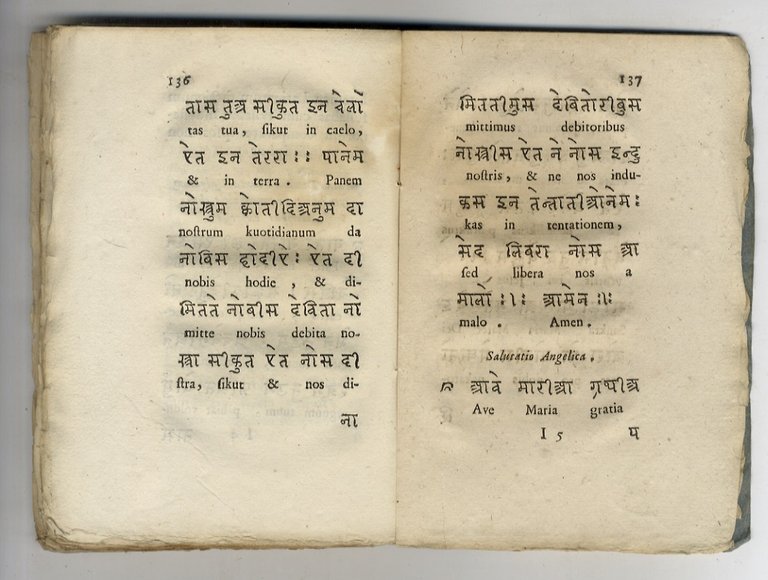 136
तास तुअ सीकुत इन चेलो
tas tua, ſikut in caelo,
ऐत इन तेररा ः पानेम
& in terra. Panem
नोस्त्रुम क्वोतीदिअनुम दा
noſtrum kuotidianum da
नोविस होदीऐ ः ऐत दी
nobis hodie, & di-
मितते नोबीस देविता नो
mitte nobis debita no-
स्त्रा सीकुत ऐत नोस दी
ſtra, ſikut & nos di-
ना
137
मिततीमुस देबितोरीबुस
mittimus debitoribus
नोस्त्रीस ऐत ने नोस इन्दु
noſtris, & ne nos indu-
कस इन तेन्तातीओनेम ः
kas in tentationem,
सेद लिबरा नोस आ
ſed libera nos a
मालो ः।ः आमेन ः।ः
malo. Amen.
Salutatio Angelica.
आवे मारीआ ग्रष्टीअ
Ave Maria gratia
I 5 प